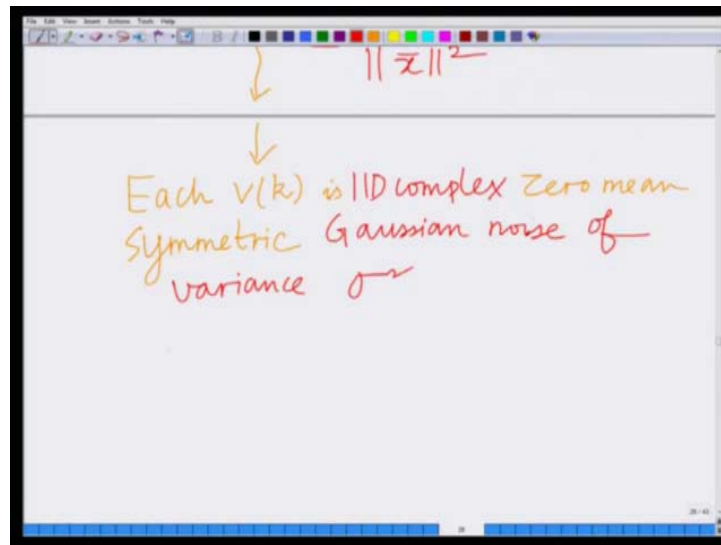 File Edit View Insert Actions Tools Help
‖x̄‖²
Each v(k) is IID complex zero mean
symmetric Gaussian noise of
variance σ²